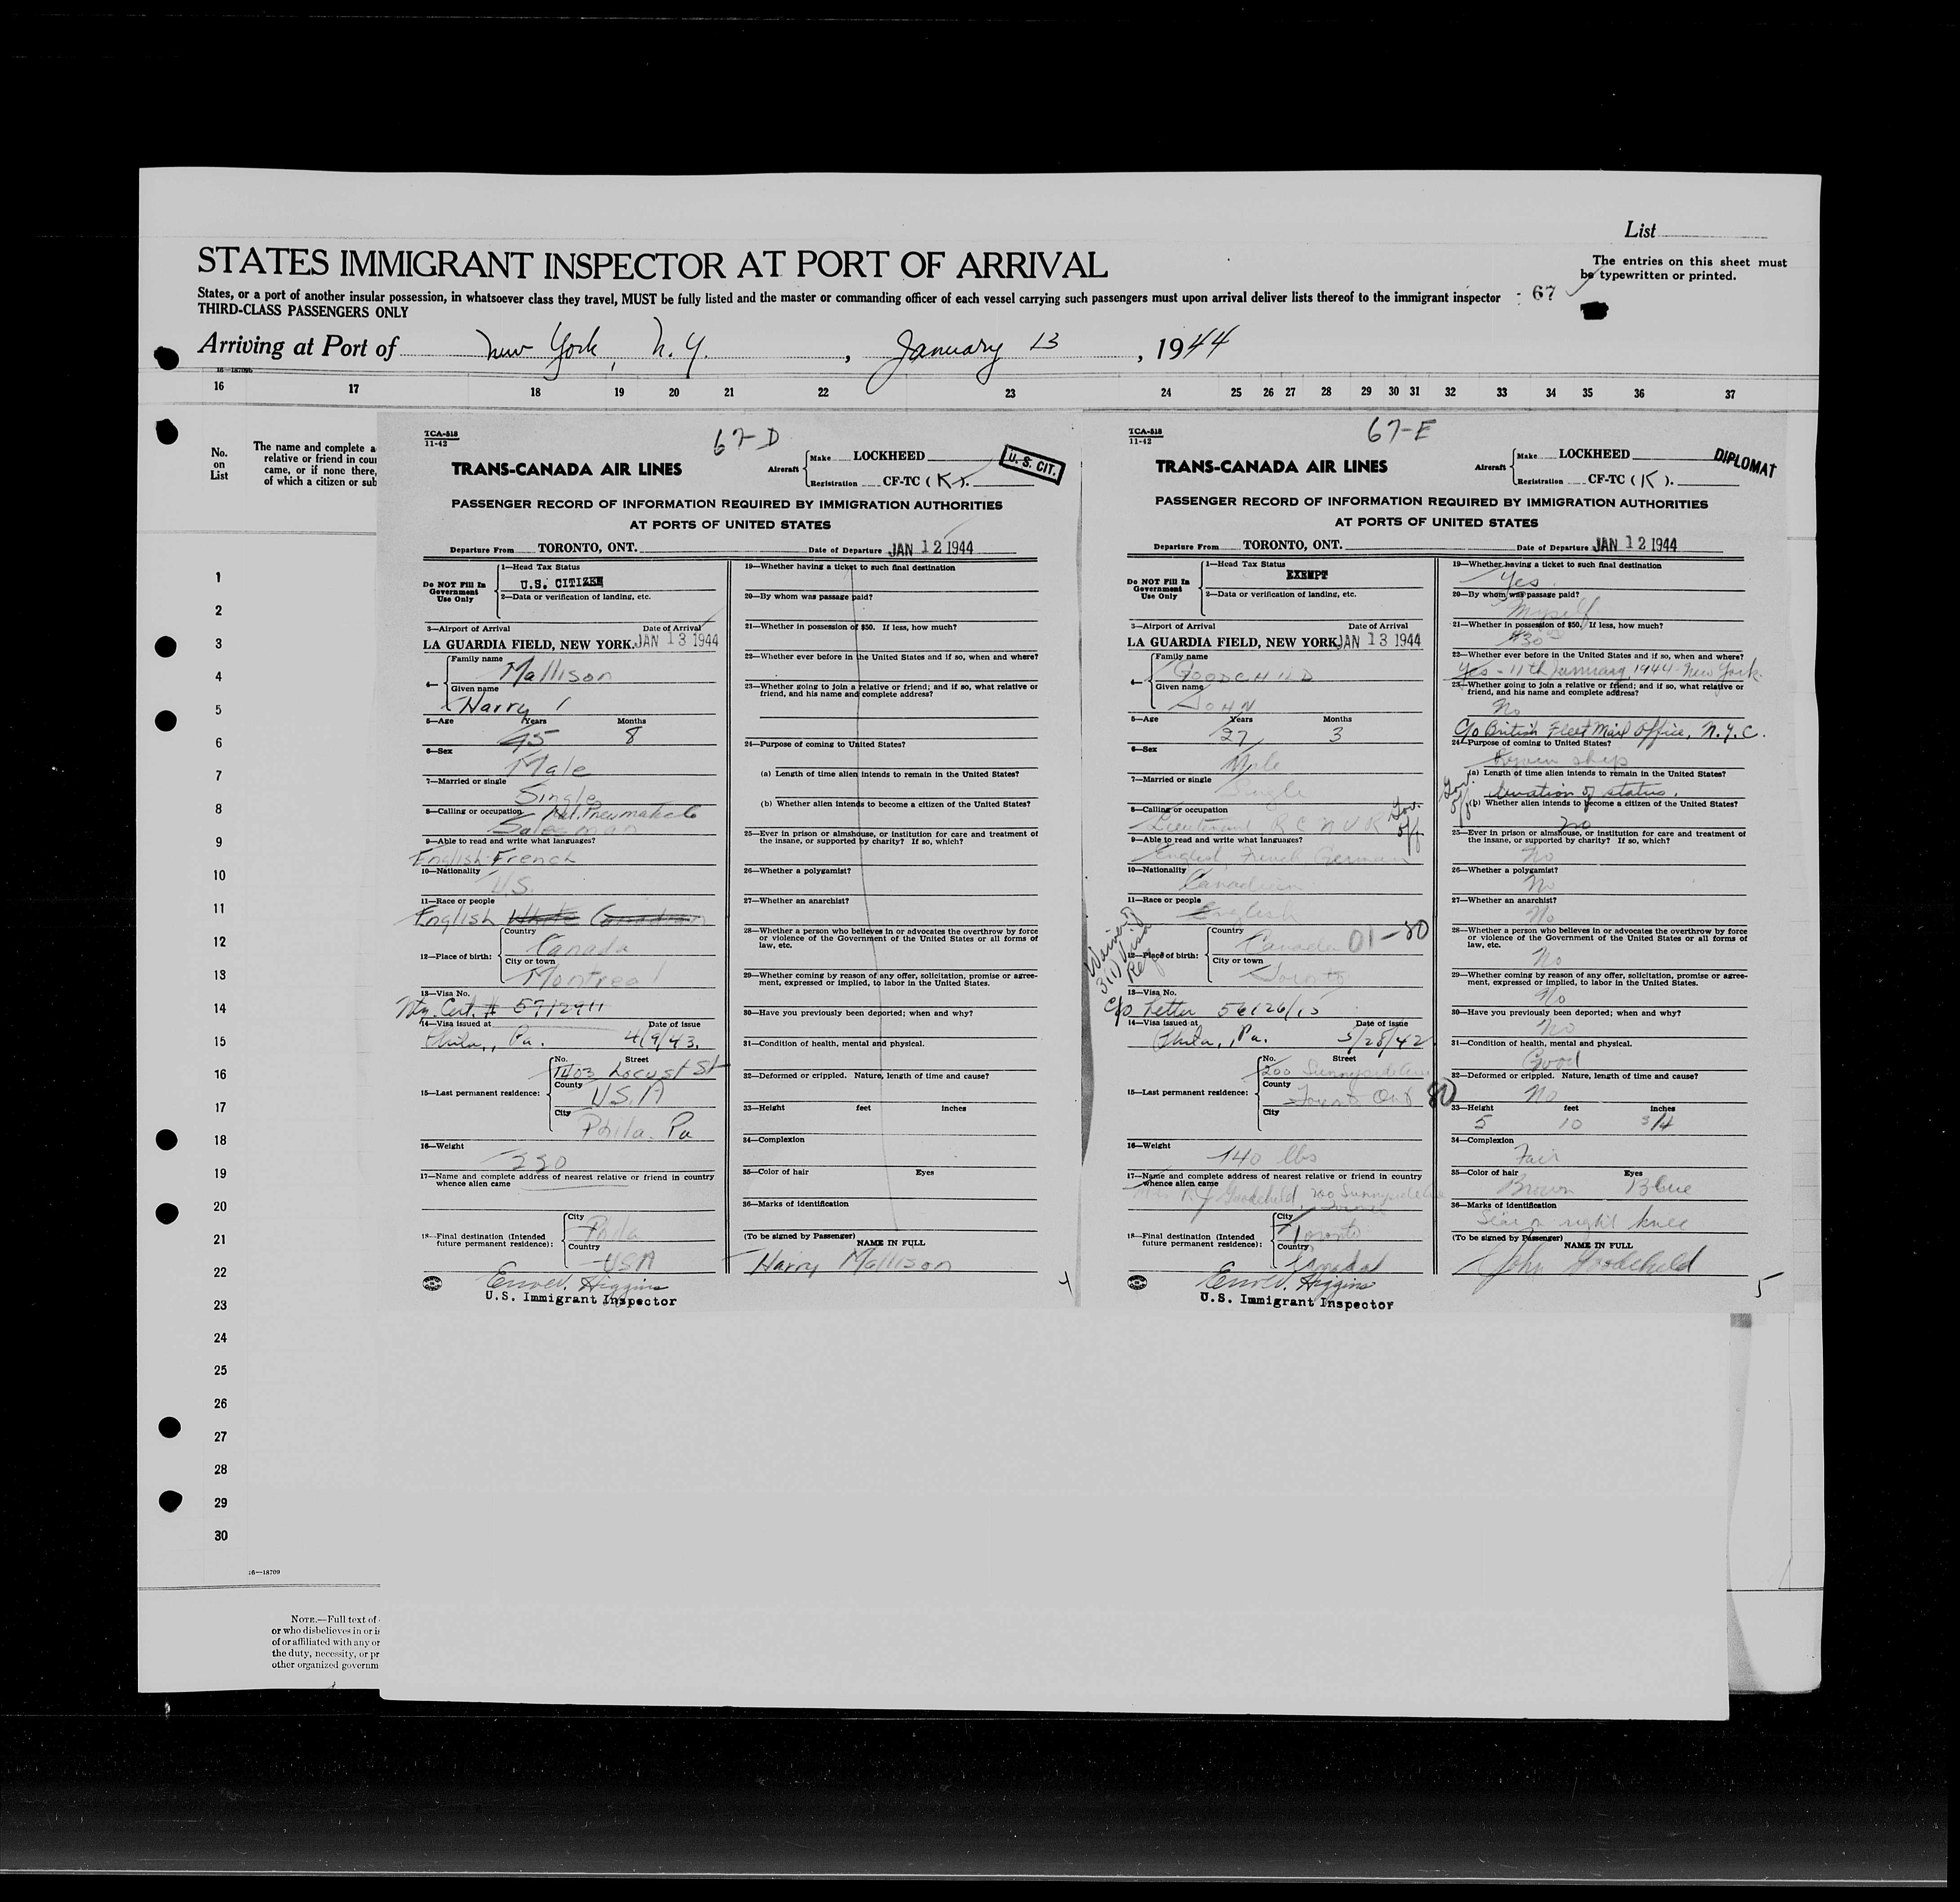 List
STATES IMMIGRANT INSPECTOR AT PORT OF ARRIVAL
The entries on this sheet must
be typewritten or printed.
States, or a port of another insular possession, in whatsoever class they travel, MUST be fully listed and the master or commanding officer of each vessel carrying such passengers must upon arrival deliver lists thereof to the immigrant inspector
67
THIRD-CLASS PASSENGERS ONLY
Arriving at Port of New York, N. Y., January 13, 1944
16 17 18 19 20 21 22 23 24 25 26 27 28 29 30 31 32 33 34 35 36 37
No.
on
List
The name and complete a
relative or friend in coun
came, or if none there,
of which a citizen or sub
1
2
3
4
5
6
7
8
9
10
11
12
13
14
15
16
17
18
19
20
21
22
23
24
25
26
27
28
29
30
16—18709
NOTE.—Full text of
or who disbelieves in or is
of or affiliated with any or
the duty, necessity, or pr
other organized governm
TCA-518
11-42
67-D
TRANS-CANADA AIR LINES
Aircraft
Make LOCKHEED
Registration CF-TC (K).
U. S. CIT.
PASSENGER RECORD OF INFORMATION REQUIRED BY IMMIGRATION AUTHORITIES
AT PORTS OF UNITED STATES
Departure From TORONTO, ONT. Date of Departure JAN 12 1944
Do NOT Fill In
Government
Use Only
1—Head Tax Status
U.S. CITIZEN
2—Data or verification of landing, etc.
3—Airport of Arrival Date of Arrival
LA GUARDIA FIELD, NEW YORK. JAN 13 1944
4— Family name
Mallison
Given name
Harry
5—Age Years Months
45 8
6—Sex
Male
7—Married or single
Single
8—Calling or occupation
Salesman
9—Able to read and write what languages?
English French
10—Nationality
U.S.
11—Race or people
English White Canadian
12—Place of birth:
Country
Canada
City or town
Montreal
13—Visa No.
Ntz. Cert. # 5712911
14—Visa issued at Date of issue
Phila., Pa. 4/9/43.
15—Last permanent residence:
No. Street
1403 Locust St
County
U.S.A
City
Phila. Pa
16—Weight
220
17—Name and complete address of nearest relative or friend in country
whence alien came
18—Final destination (Intended
future permanent residence):
City
Phila
Country
USA
Higgins
U.S. Immigrant Inspector
19—Whether having a ticket to such final destination
20—By whom was passage paid?
21—Whether in possession of $50. If less, how much?
22—Whether ever before in the United States and if so, when and where?
23—Whether going to join a relative or friend; and if so, what relative or
friend, and his name and complete address?
24—Purpose of coming to United States?
(a) Length of time alien intends to remain in the United States?
(b) Whether alien intends to become a citizen of the United States?
25—Ever in prison or almshouse, or institution for care and treatment of
the insane, or supported by charity? If so, which?
26—Whether a polygamist?
27—Whether an anarchist?
28—Whether a person who believes in or advocates the overthrow by force
or violence of the Government of the United States or all forms of
law, etc.
29—Whether coming by reason of any offer, solicitation, promise or agree-
ment, expressed or implied, to labor in the United States.
30—Have you previously been deported; when and why?
31—Condition of health, mental and physical.
32—Deformed or crippled. Nature, length of time and cause?
33—Height feet inches
34—Complexion
35—Color of hair Eyes
36—Marks of identification
(To be signed by Passenger) NAME IN FULL
Harry Mallison
4
TCA-518
11-42
67-E
TRANS-CANADA AIR LINES
Aircraft
Make LOCKHEED
Registration CF-TC (K).
DIPLOMAT
PASSENGER RECORD OF INFORMATION REQUIRED BY IMMIGRATION AUTHORITIES
AT PORTS OF UNITED STATES
Departure From TORONTO, ONT. Date of Departure JAN 12 1944
Do NOT Fill In
Government
Use Only
1—Head Tax Status
EXEMPT
2—Data or verification of landing, etc.
3—Airport of Arrival Date of Arrival
LA GUARDIA FIELD, NEW YORK. JAN 13 1944
4— Family name
GOODCHILD
Given name
JOHN
5—Age Years Months
27 3
6—Sex
Male
7—Married or single
Single
8—Calling or occupation
Lieutenant R C N V R
9—Able to read and write what languages?
English French German
10—Nationality
Canadian
11—Race or people
English
12—Place of birth:
Country
Canada 01-80
City or town
Toronto
13—Visa No.
c/o Letter 56126/15
14—Visa issued at Date of issue
Phila., Pa. 5/28/42
15—Last permanent residence:
No. Street
200 Sunnyside Ave
County
Toronto Ont 80
City
16—Weight
140 lbs
17—Name and complete address of nearest relative or friend in country
whence alien came
Goodchild 200 Sunnyside Ave
Toronto
18—Final destination (Intended
future permanent residence):
City
Toronto
Country
Canada
Higgins
U.S. Immigrant Inspector
19—Whether having a ticket to such final destination
Yes
20—By whom was passage paid?
Myself
21—Whether in possession of $50. If less, how much?
$30
22—Whether ever before in the United States and if so, when and where?
Yes - 11th January, 1944 - New York.
23—Whether going to join a relative or friend; and if so, what relative or
friend, and his name and complete address?
No
c/o British Fleet Mail Office, N.Y.C.
24—Purpose of coming to United States?
ship
(a) Length of time alien intends to remain in the United States?
duration of status.
(b) Whether alien intends to become a citizen of the United States?
no
25—Ever in prison or almshouse, or institution for care and treatment of
the insane, or supported by charity? If so, which?
No
26—Whether a polygamist?
No
27—Whether an anarchist?
No
28—Whether a person who believes in or advocates the overthrow by force
or violence of the Government of the United States or all forms of
law, etc.
No
29—Whether coming by reason of any offer, solicitation, promise or agree-
ment, expressed or implied, to labor in the United States.
No
30—Have you previously been deported; when and why?
No
31—Condition of health, mental and physical.
Good
32—Deformed or crippled. Nature, length of time and cause?
No
33—Height feet inches
5 10 3/4
34—Complexion
Fair
35—Color of hair Eyes
Brown Blue
36—Marks of identification
Scar on right knee
(To be signed by Passenger) NAME IN FULL
John Goodchild
5